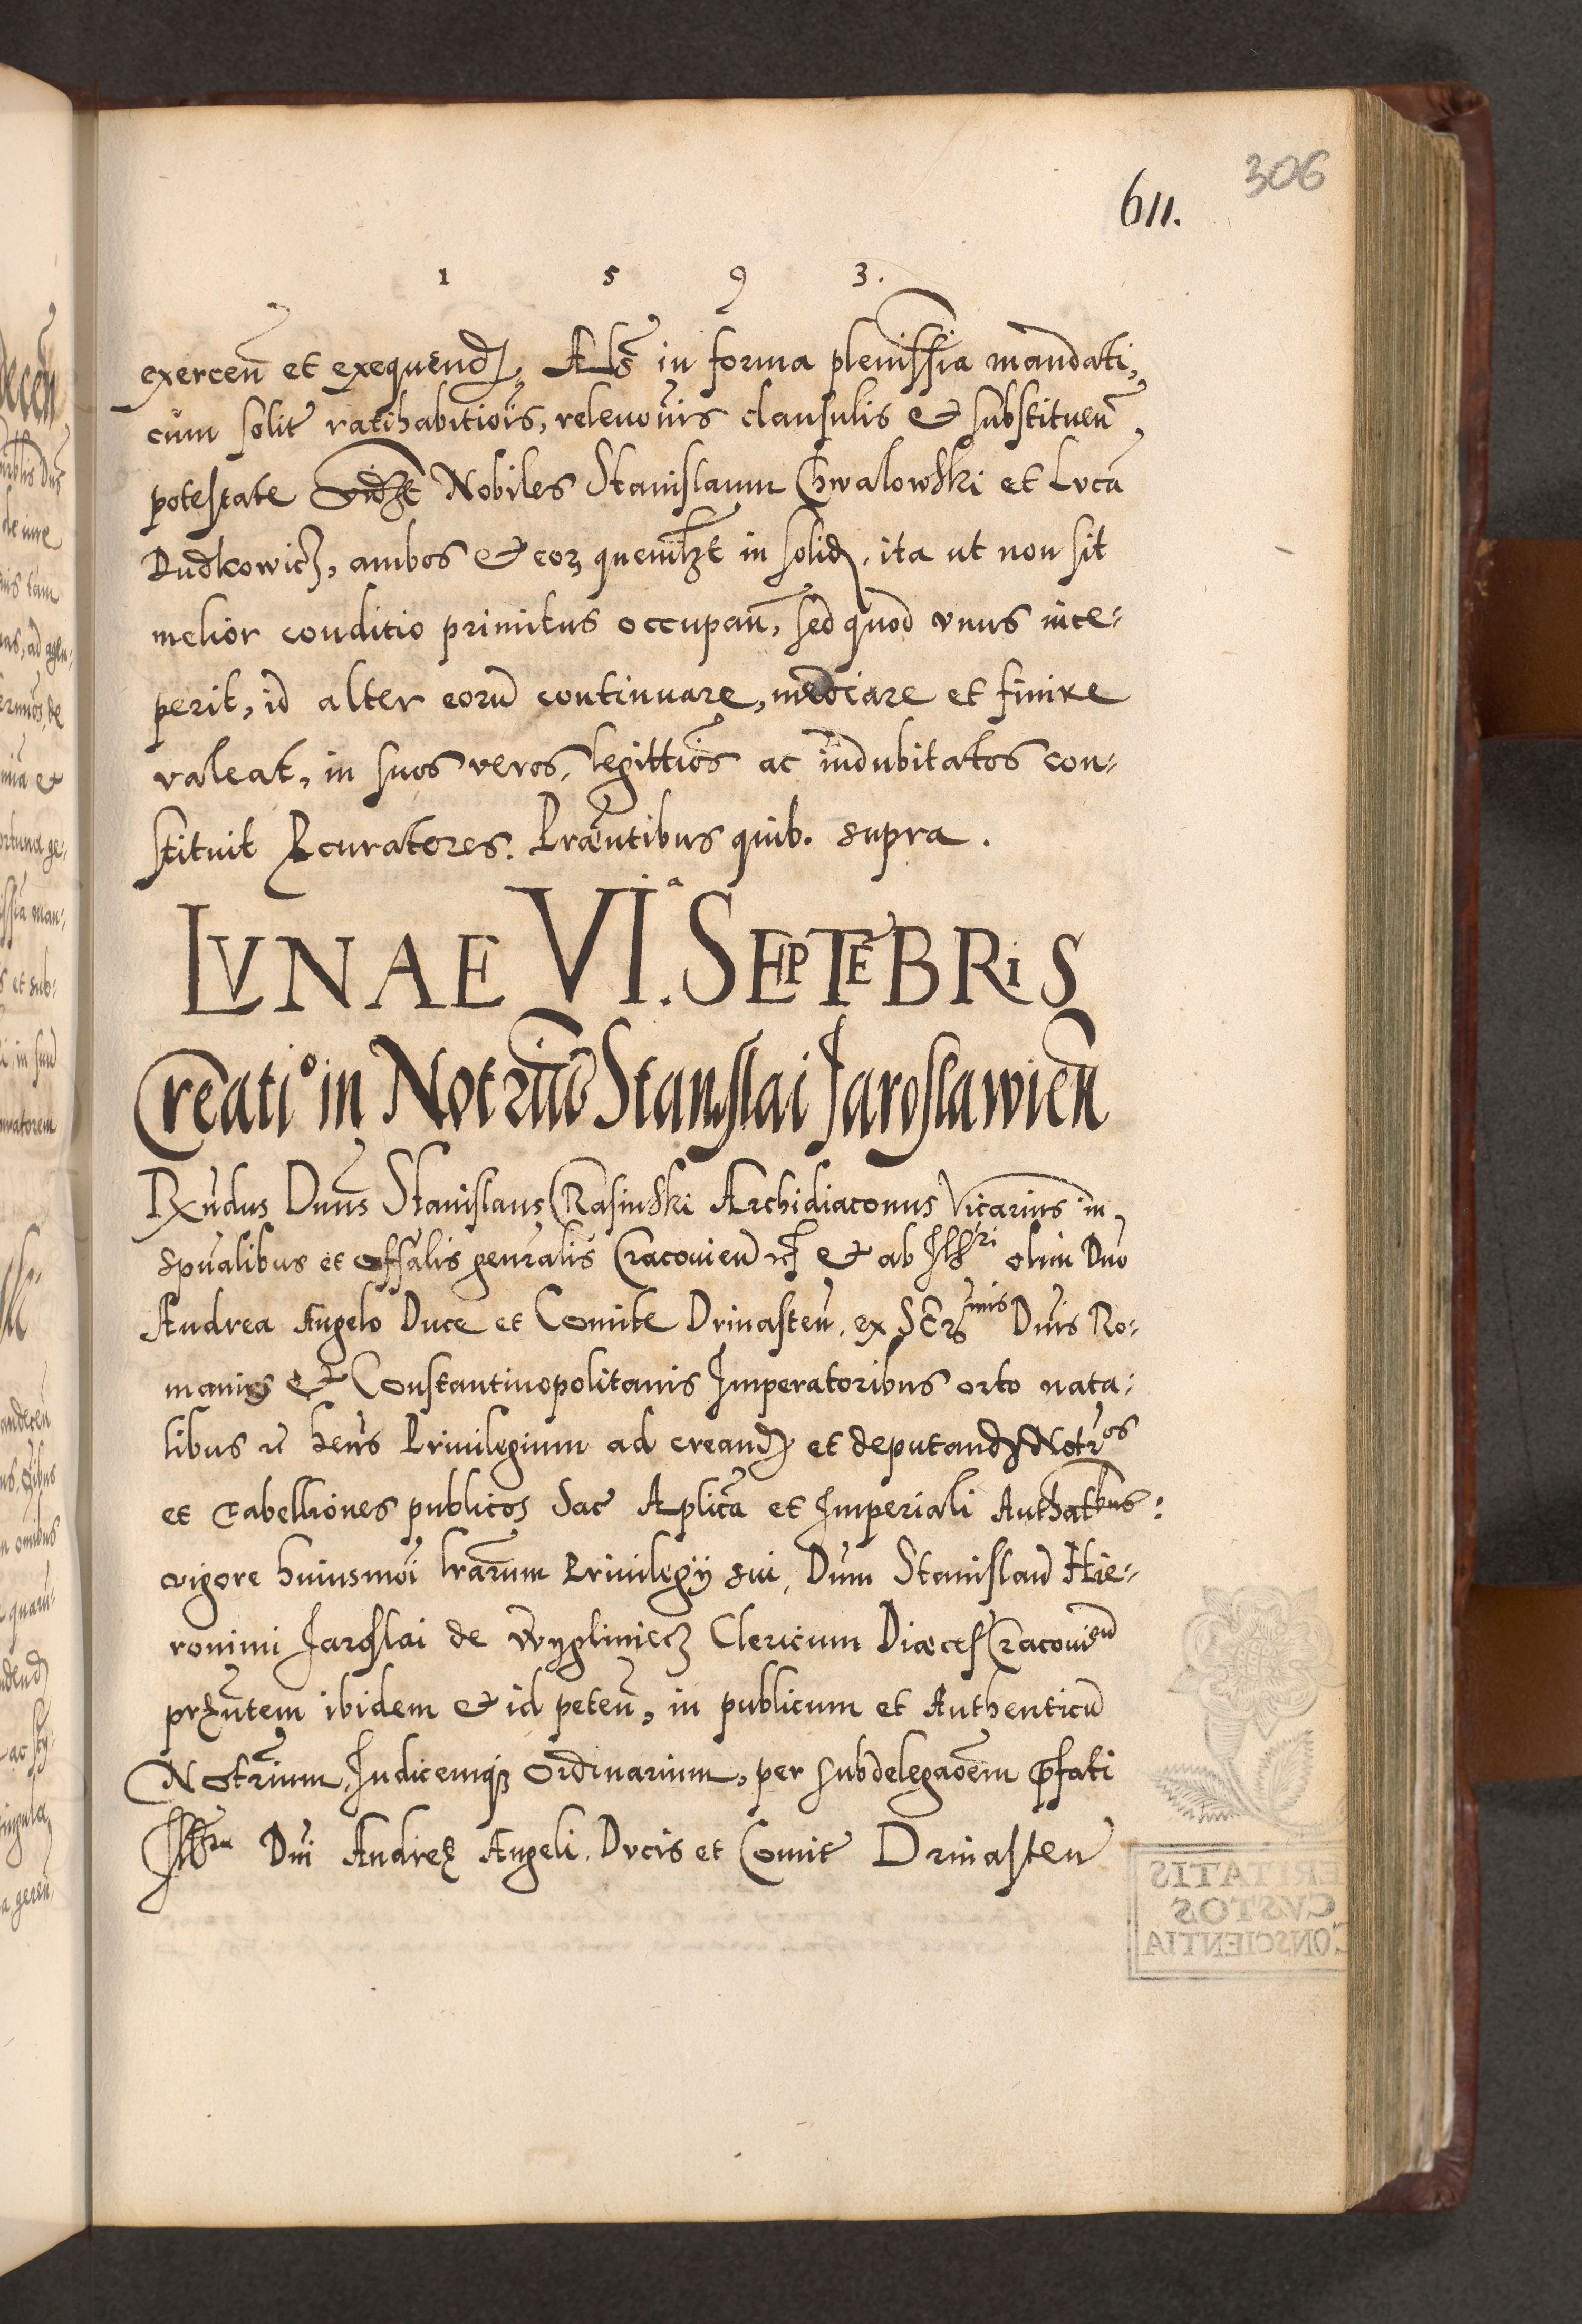 306
611.
1 5 9 3.
exerceñ et exequend. Als in forma plenissia mandati,
cum solit ratihabitiois, releuouis clausulis & substituen
potestate Nobiles Stanislaum Chwalowski et Lucā
Dudkowicz, ambos & eoꝝ quemlꝫt in solid, ita ut non sit
melior conditio primitus occupañ, sed quod vnus ince-
perit, id alter eorū continuare, mediare et finire
valeat, in suos veros, legittios ac indubitatos con-
stituit Pcuratores. Præntibus quib. supra.
LVNAE VIᵃ. SEPTĒBRIS
Creatio in Notriū Stanislai Jaroslawien
Rxndus Dnns Stanislaus Crasinski Archidiaconus Vicarius in
spualibus et offalis genralis Cracouieñ & ab Illri olim Dno
Andrea Angelo Duce et Comite Drinasteñ. ex Sermis Dnis Ro-
manis & Constantinopolitanis Imperatoribus orto nata-
libus hens Priuilegium ad creand et deputand Notros
et Tabelliones publicos Sac Aplica et Imperiali Authatbus:
vigore huiusmoi lrarum Priuilegij sui, Dnm Stanislaū Hie-
ronimi Jaroslai de Wygliniecz Clericum Diæces Cracouien
prꝫntem ibidem & id peteñ, in publicum et Authenticū
Notrium, Judicemqꝫ Ordinarium, per subdelegaoem pfati
Illris Dni Andreę Angeli, Ducis et Comit Drinasten
VERITATIS
CVSTOS
CONSCIENTIA